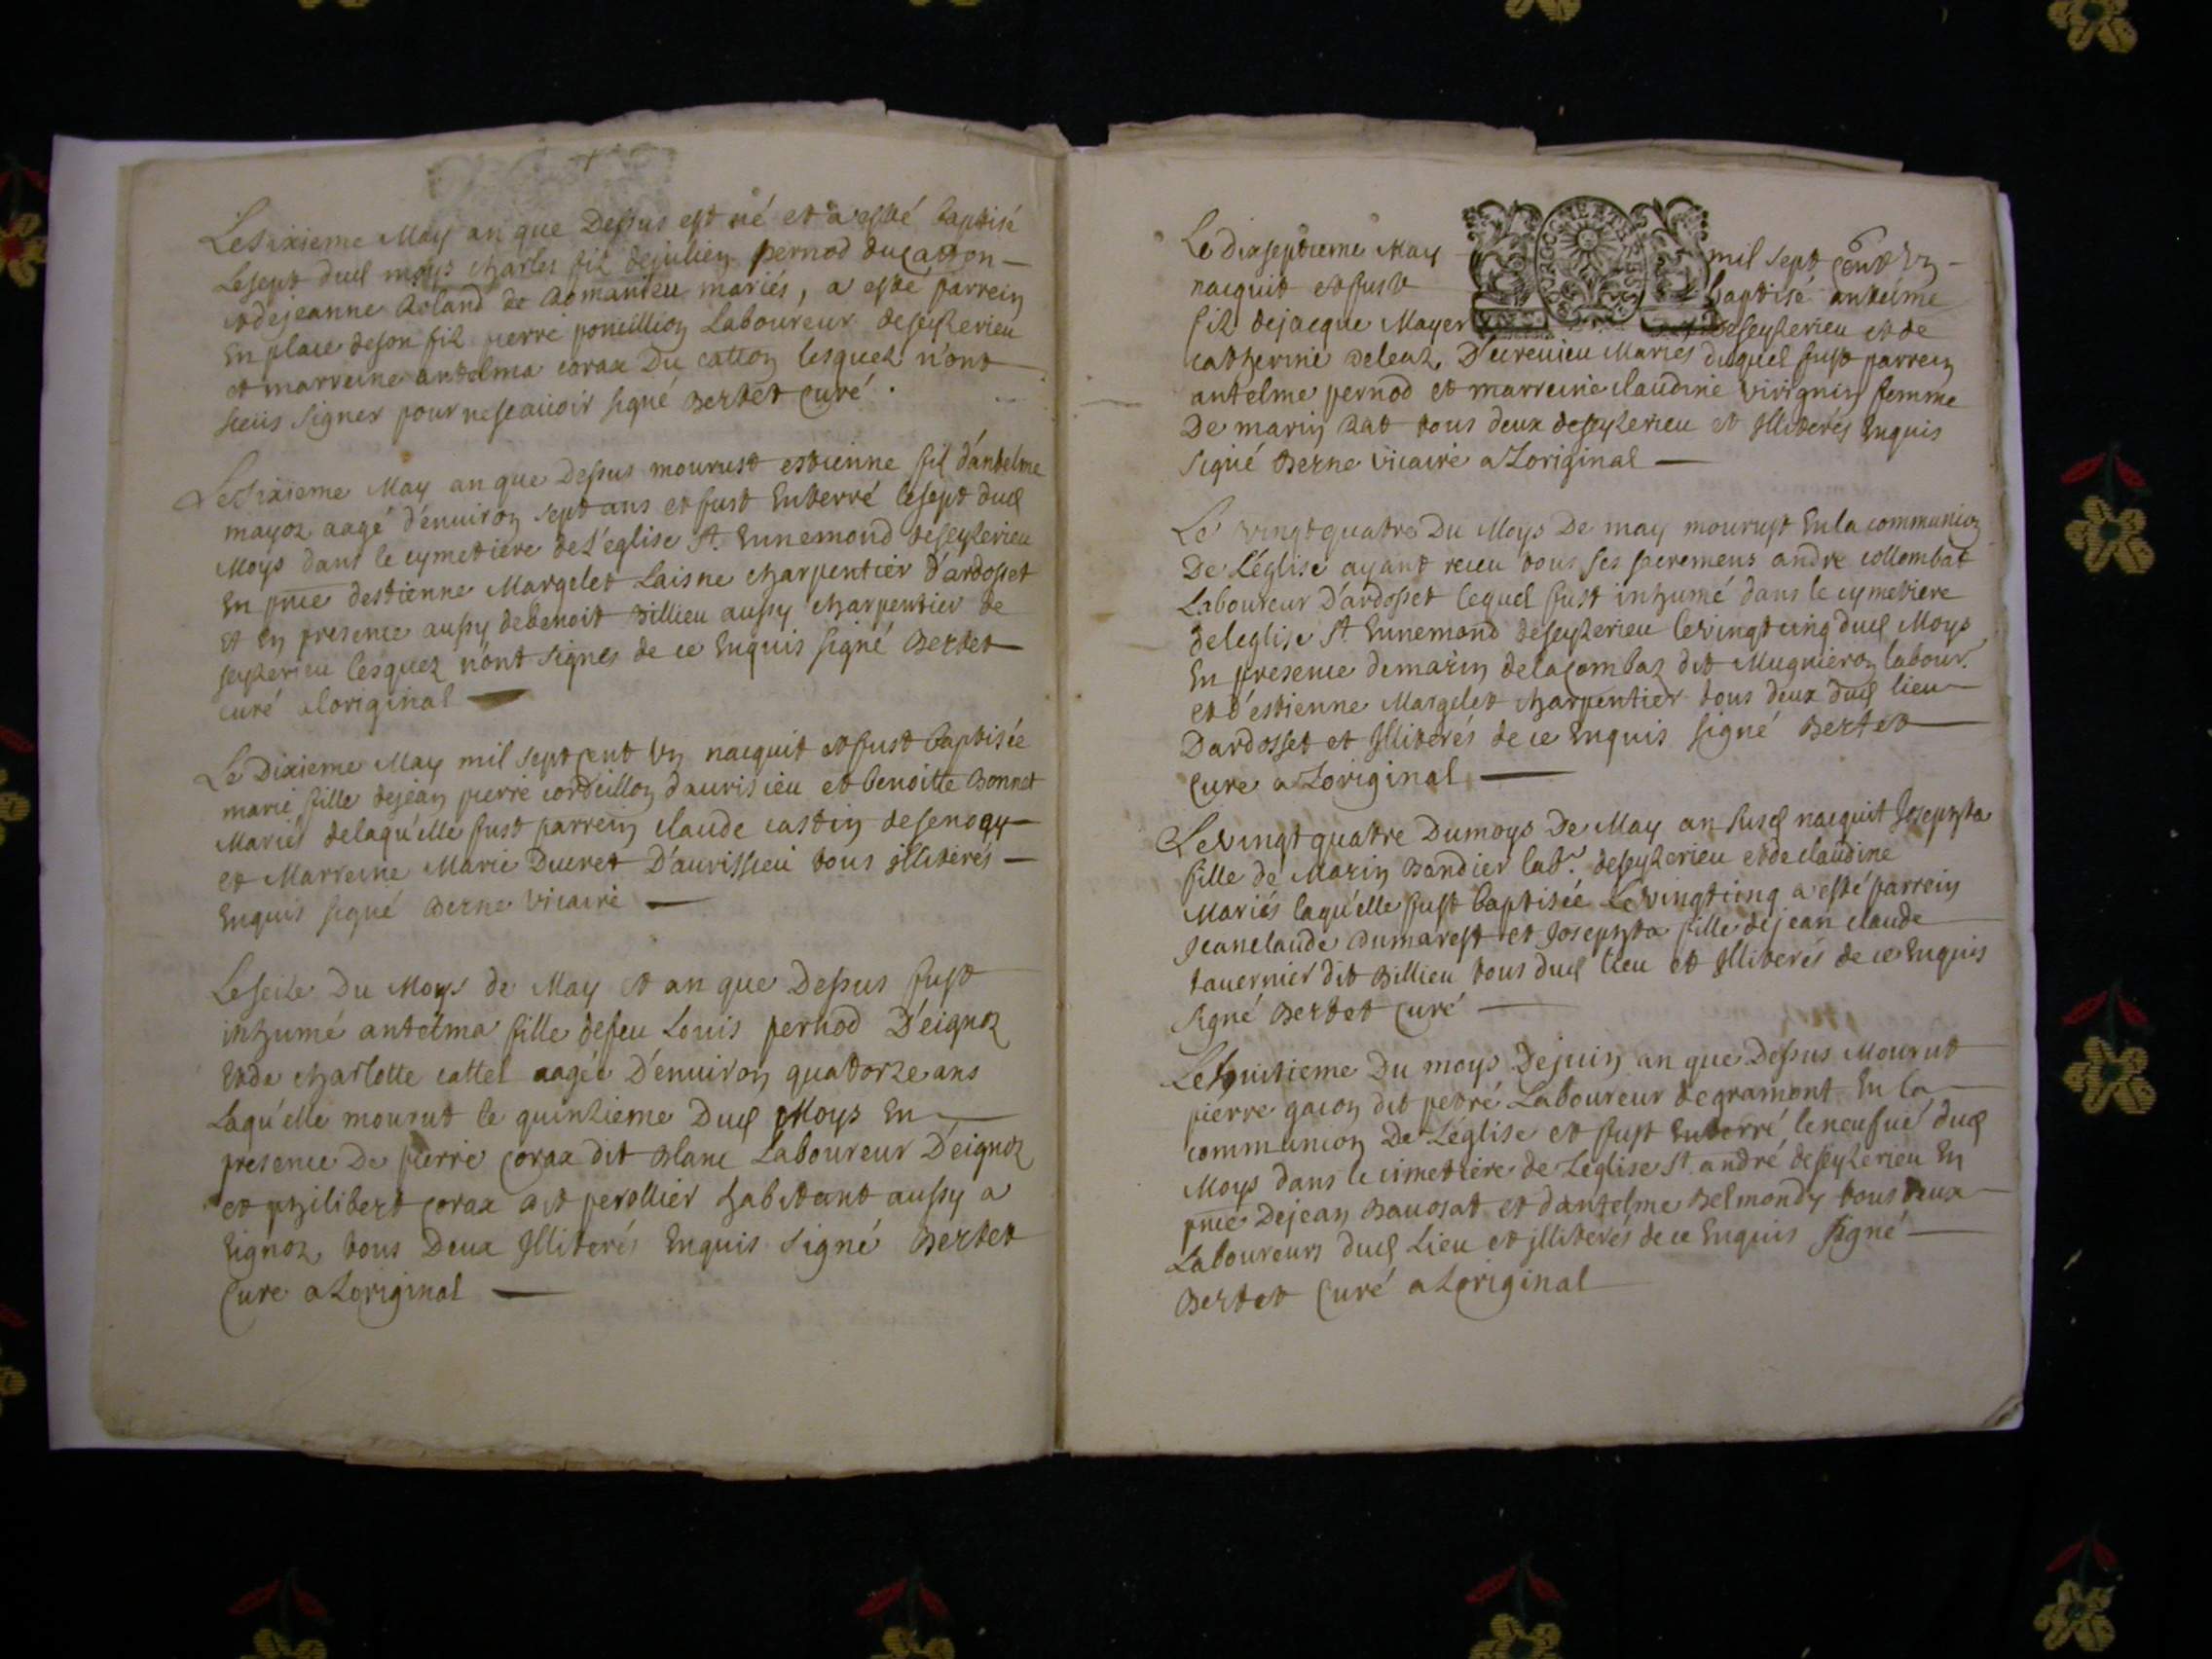 Le sixieme May an que Dessus est né et a esté baptisé
le sept dud moys charles fils de julien pernod du catton
et de jeanne Roland de Romanieu mariés, a esté parrein
En place de son fils pierre poncillion Laboureur de seyzerieu
et marreine antelma corax Du catton lesquelz n'ont
sceus signer pour ne scauoir signé Bertet Curé.
Le sixieme May an que Dessus mourust estienne fil d'antelme
mayoz aagé d'enuiron sept ans et fust Enterré le sept dud
Moys dans le cymetiere de L'eglise St. Ennemond de seyzerieu
En pnce destienne Margelet Laisne charpentier d'ardosset
et En presence aussy de benoit Billieu aussy charpentier de
seyzerieu lesquez n'ont signes de ce Enquis signé Bertet
curé a loriginal
Le Dixieme May mil sept cent Vn nacquit et fust baptisée
marie fille de jean pierre cordeillon d'aurisieu et benoitte Bonnet
Mariés delaqu'elle fust parrein claude castin de
et Marreine Marie Ducret D'aurissieu tous illiterés
Enquis signé Berne Vicaire
Le seize Du Moys de May et an que Dessus fust
inhumé antelma fille de feu Louis pernod D'eignoz
et de charlotte cattel aagée D'enuiron quatorze ans
Laqu'elle mourut le quinzieme Dud Moys En
presence De pierre corax dit Blanc Laboureur D'eignoz
et philibert corax dit perollier habitant aussy a
Eignoz tous Deux Illiterés Enquis signé Bertet
Cure a Loriginal
Le Dixseptieme May mil sept cent Vn
nacquit et fust baptisé antelme
fil de jacque Mayer de seyzerieu et de
catherine deleaz D'ecreuieu Maries duquel fust parrein
antelme pernod et marreine claudine vivignin femme
De marin Rat tous deux de seyzerieu et Illiterés Enquis
signé Berne vicaire a Loriginal
Le vingt quatre Du Moys De may mourust En la communion
De L'eglise ayant receu tous ses sacremens andre collombat
Laboureur D'ardosset lequel fust inhumé dans le cymetiere
de leglise St. Ennemond de seyzerieu le vingt cinq dud Moys
En presence de marin de la combaz dit Mugnieron labour.
et d'estienne Margelet charpentier tous deux dud lieu
Dardosset et Illiterés de ce Enquis signé Bertet
Cure a Loriginal
Le vingt quatre Du moys De May an susd nacquit Josephta
fille de Marin Bandier labr. de seyzerieu et de claudine
Mariés laqu'elle fust baptisée Le vingt cinq a esté parrein
Jean claude Dumarest et Josephta fille de jean claude
tauernier dit Billieu tous dud lieu et Illiterés de ce Enquis
signé Bertet Curé
Le huitieme Du moys De juin an que Dessus Mourut
pierre gacon dit petré Laboureur de gramont En la
communion De L'eglise et fust Enterré le neufuié dud
Moys dans le cimetiere de L'eglise St. andré de seyzerieu En
pnce De jean Bauosat et d'antelme Belmondy tous deux
Laboureurs dud Lieu et illiterés de ce Enquis signé
Bertet Curé a Loriginal